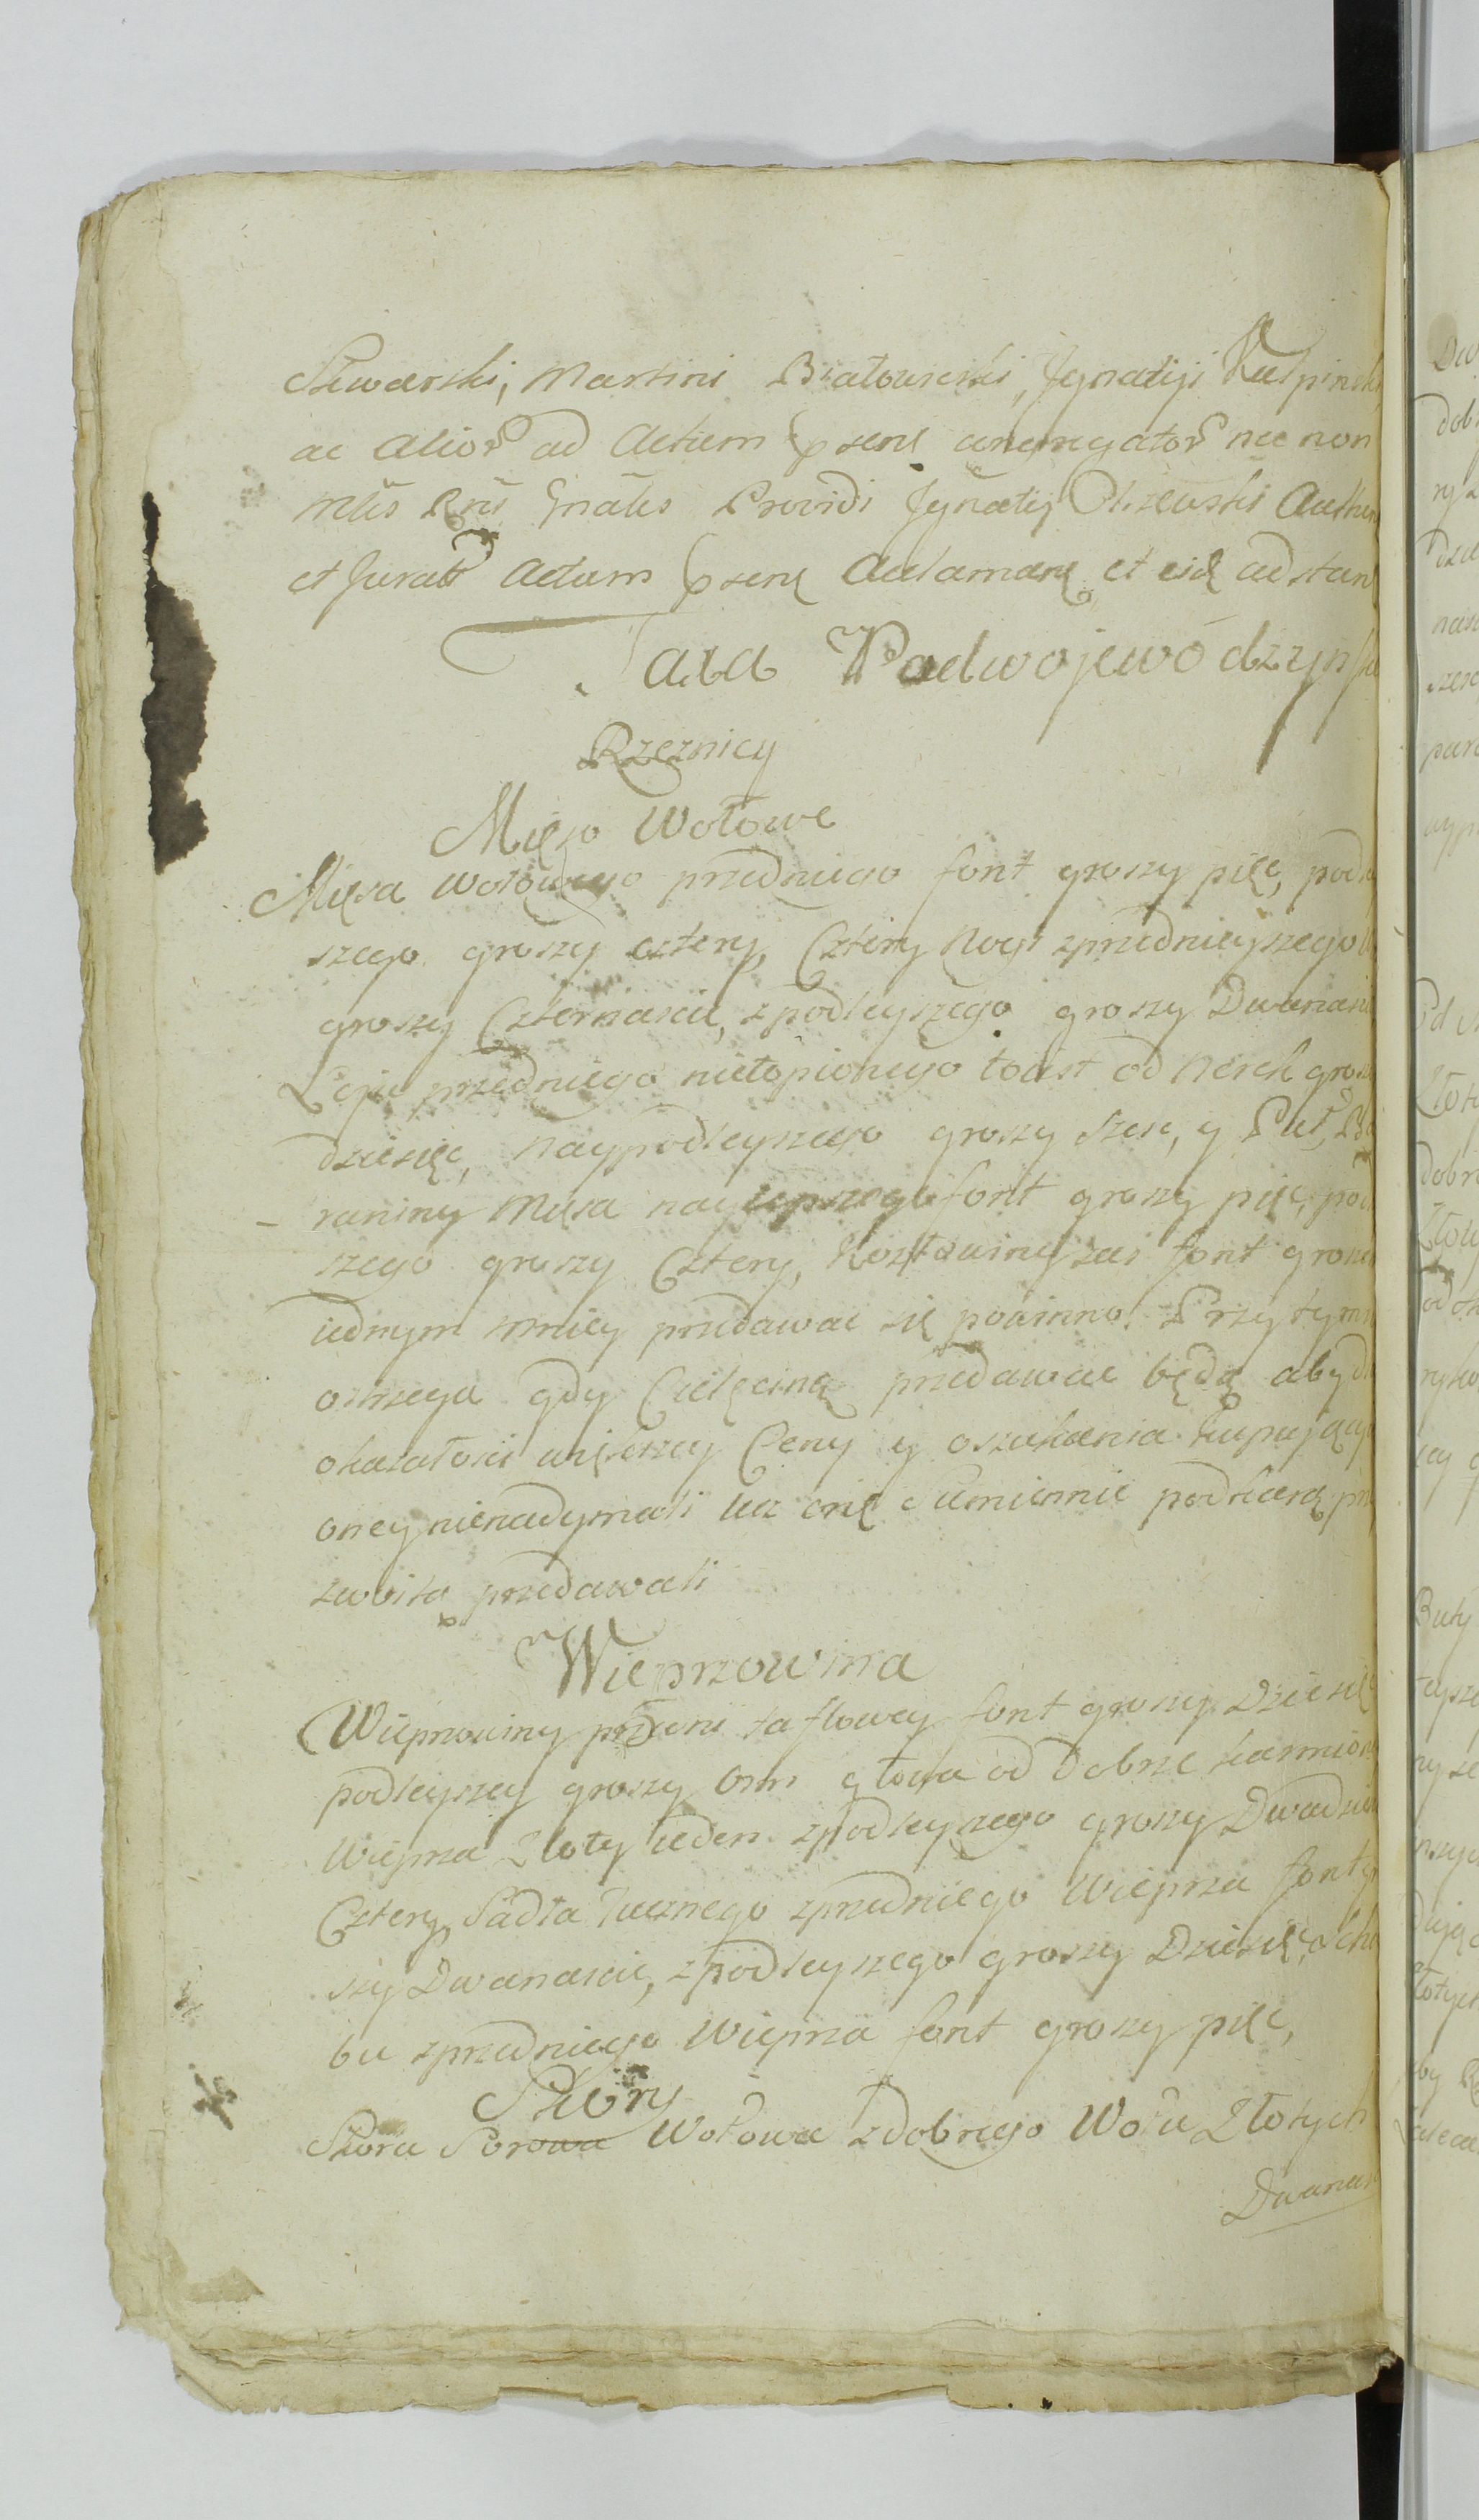 Skwarski, Martini Białowieski, Jgnatiji Kulpinski
ac alior ad Actum psenę congregator nec non
Mtis Rris Gnalis Providi Jgnatij Olszewski
et Jurat Actum psenę Aclamanę et eidę adstan
Taxa Podwojewodzynska
Rzeznicy
Mięso Wołowe
Mięsa Wołowego przedniego font groszy pięc, podley
szego groszy cztery, Cztery Nogi zprzednieyszego
groszy Czternascie, zpodleyszego groszy Dwanascie
Łoju przedniego nietopionego to iest od Nerek groszy
dziesięc, naypodleyszego groszy szesc, y Puł, Ba
raniny Mięsa naylepszego font groszy pięc, podley
szego groszy Cztery, Kozłowiny zas font groszem
iednym mniey przedawac się powinno. Przy tym
ostrzega gdy Cielęcinę przedawac będą aby dla
okazałosci więkrzey Ceny y oszukania kupujących
oney nienadymali lecz onę Sumiennie pod karą prze
zwoitą przedawali
Wieprzowina
Wieprzowiny przedni taflowey font groszy Dziesięc
podleyszey groszy Osm głowa od dobrze karmione
Wieprza Złoty ieden zpodleyszego groszy Dwadziescia
Cztery, Sadła Tucznego zprzedniego Wieprza font gro
szy Dwanascie, zpodleyszego groszy Dziesięc, Scha
bu zprzedniego Wieprza font groszy pięc,
Skory
Skora Sorowa Wołowa z dobrego Wołu Złotych
Dwanas
Dw
dob